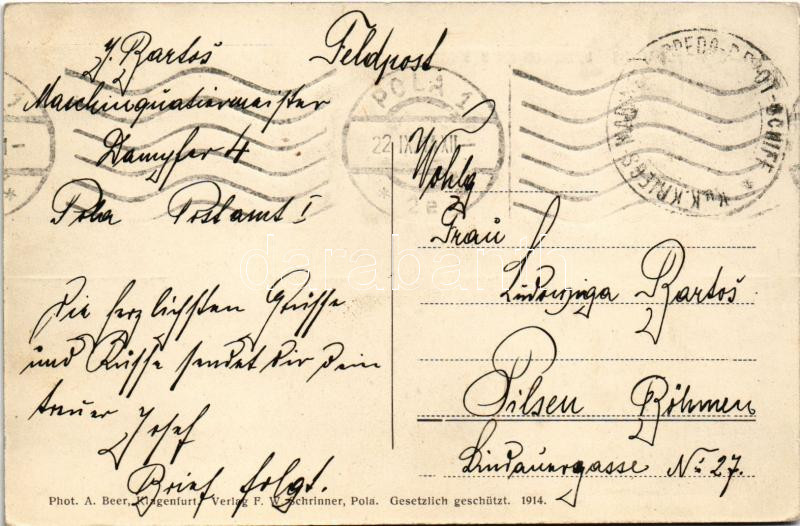 J. Bartoš
Feldpost
Maschinquatiermeister
Dampfer 4
Pola Postamt I
POLA 1
22.IX. XII
K.u.K. KRIEGSMARINE TORPEDO-DEPOT-SCHIFF
Wohlg
Frau
Ludowiga Bartoš
Pilsen Böhmen
Lindauergasse No 27.
Die herzlichsten Grüsse
und Küsse sendet dir dein
treuer Josef
Brief folgt.
darabanth
Phot. A. Beer, Klagenfurt. Verlag F. W. Schrinner, Pola. Gesetzlich geschützt. 1914.